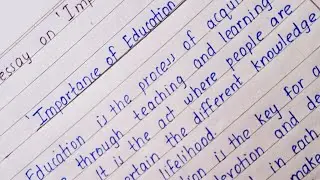 essay on 'Imp
'Importance of Education
Education is the process of acqui
through teaching and learning
It is the act where people are
certain the different knowledge
lifelihood.
is the key for a
devotion and de
in each
make